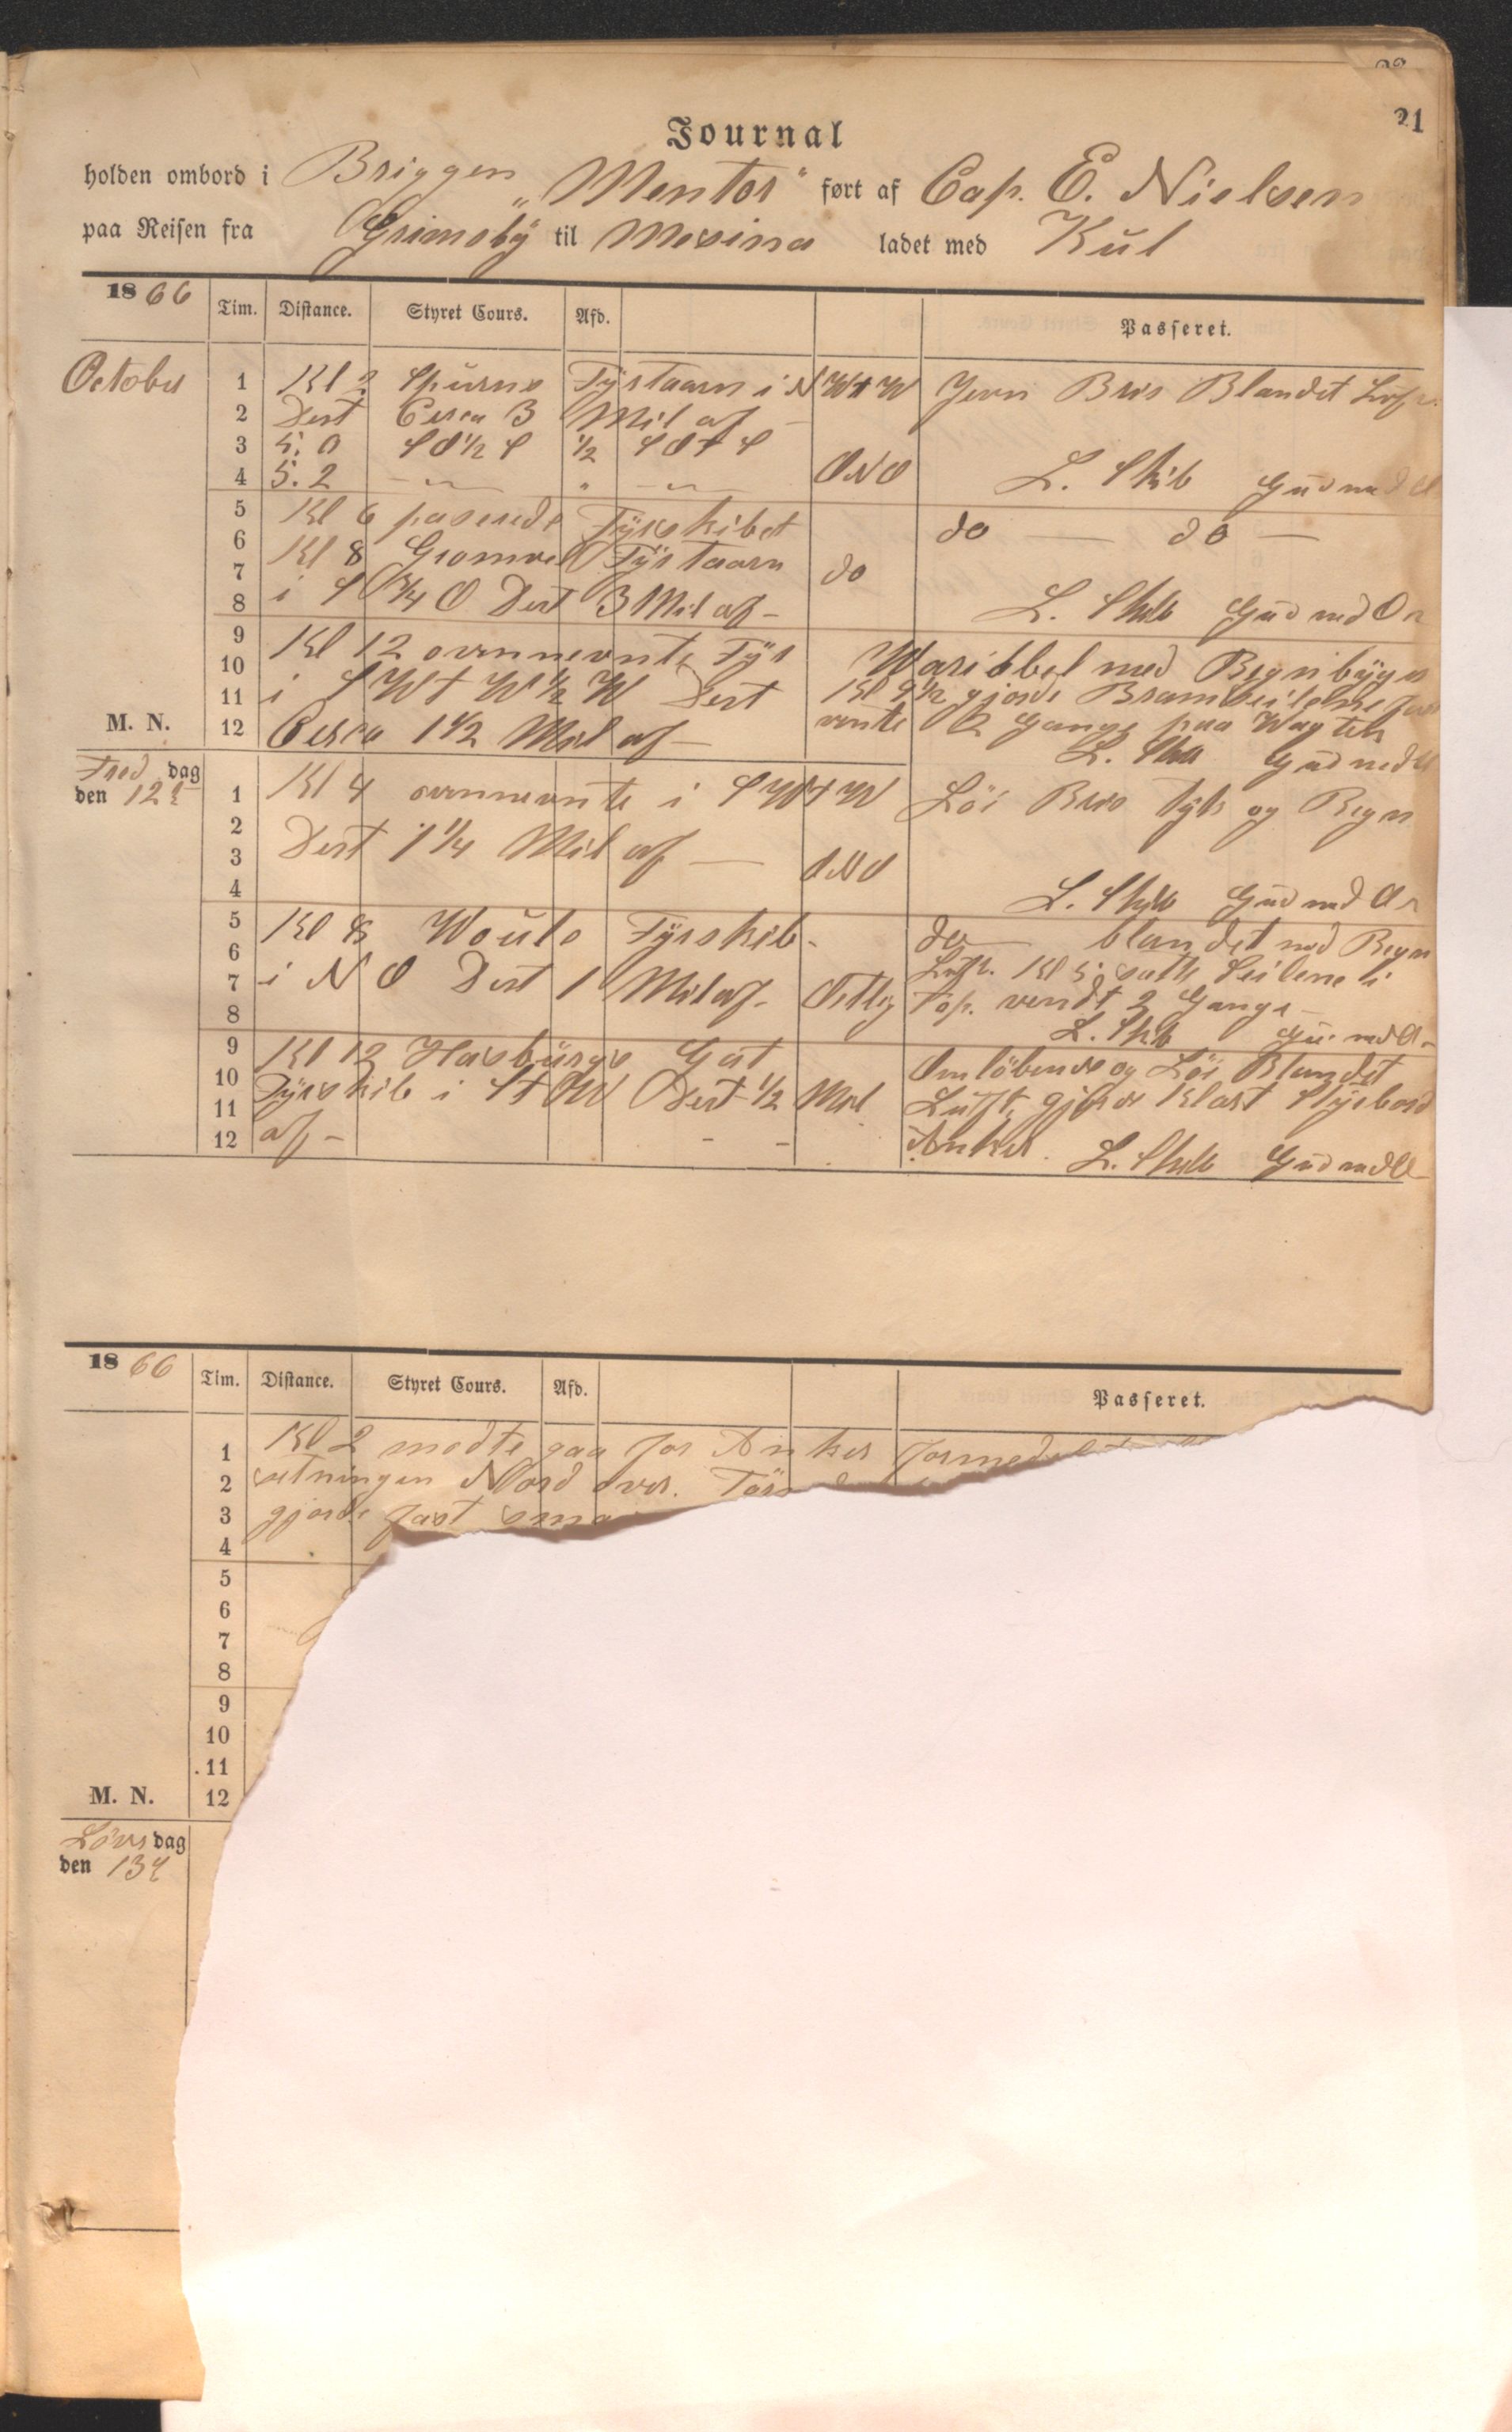 21
Journal
holden ombord i Briggen „Mentor“ ført af Cap. E. Nielsen
paa Reisen fra Grimsbÿ til Mesina ladet med Kul
1866 Tim. Distance. Styret Cours. Afd. Passeret.
October 1 Kl 2 Spurns Fÿrtaarn i NWtW Jevn Bris Blandet Luft
2 Dert Cerca 3 Mil af –
3 5.0 SO½S ½ SOtS
4 5.2 – „ – ONO L. Skib Gud med Os
5 Kl 6 paserede Fÿrskibet do — do —
6
7 Kl 8 Gromvel Fÿrtaarn do
8 i S¾O Dert 3 Mil af – L. Skib Gud med Os
9 Kl 12 ovennevnte Fÿr Variabel med Regnbÿger
10
11 i SWtW½W Dert Kl 9½ gjorde Bramseilene fast
M. N. 12 Cerca 1½ Mil af – vente 2 Gange paa Wagten
L. Skib Gud med Os
Freddag
den 12te 1 Kl 4 ovennevnte i SWtW Löi Bris tÿk og Regn
2
3 Dert 1¼ Mil af — ONO
4 L. Skib Gud med Os
5 Kl 8 Would Fÿrskib – do blandet med Regn
6 Luft. Kl 5 satte Seilene til
7 i NO Dert 1 Mil af – Ostlig Top. vendt 2 Gange
8 L. Skib Gud med Os
9 Kl 12 Hasburgs Gat Omlöbende og Löi Blandet
10 Fÿrskib i StW Dert ½ Mil Luft, gjorde Klart Stÿrbord
11
12 af – Anker. L. Skib Gud med Os
1866 Tim. Distance. Styret Cours. Afd. Passeret.
1 Kl 2 modte gaa for Anker formedelst
2 setningen Nord over.
3 gjorde fast
4
5
6
7
8
9
10
11
M. N. 12
Löverdag
den 13de